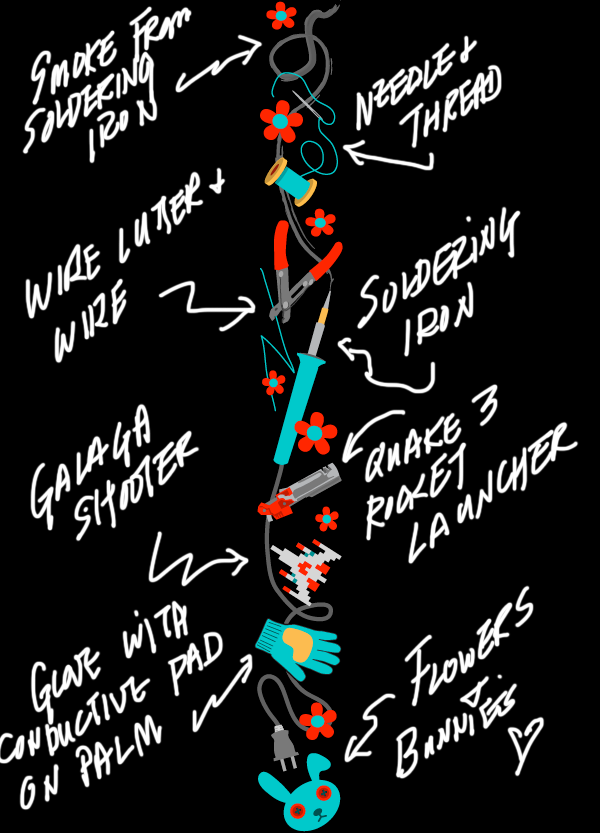 SMOKE FROM
SOLDERING
IRON
NEEDLE &
THREAD
WIRE CUTTER &
WIRE
SOLDERING
IRON
GALAGA
SHOOTER
QUAKE 3
ROCKET
LAUNCHER
GLOVE WITH
CONDUCTIVE PAD
ON PALM
FLOWERS
&
BUNNIES